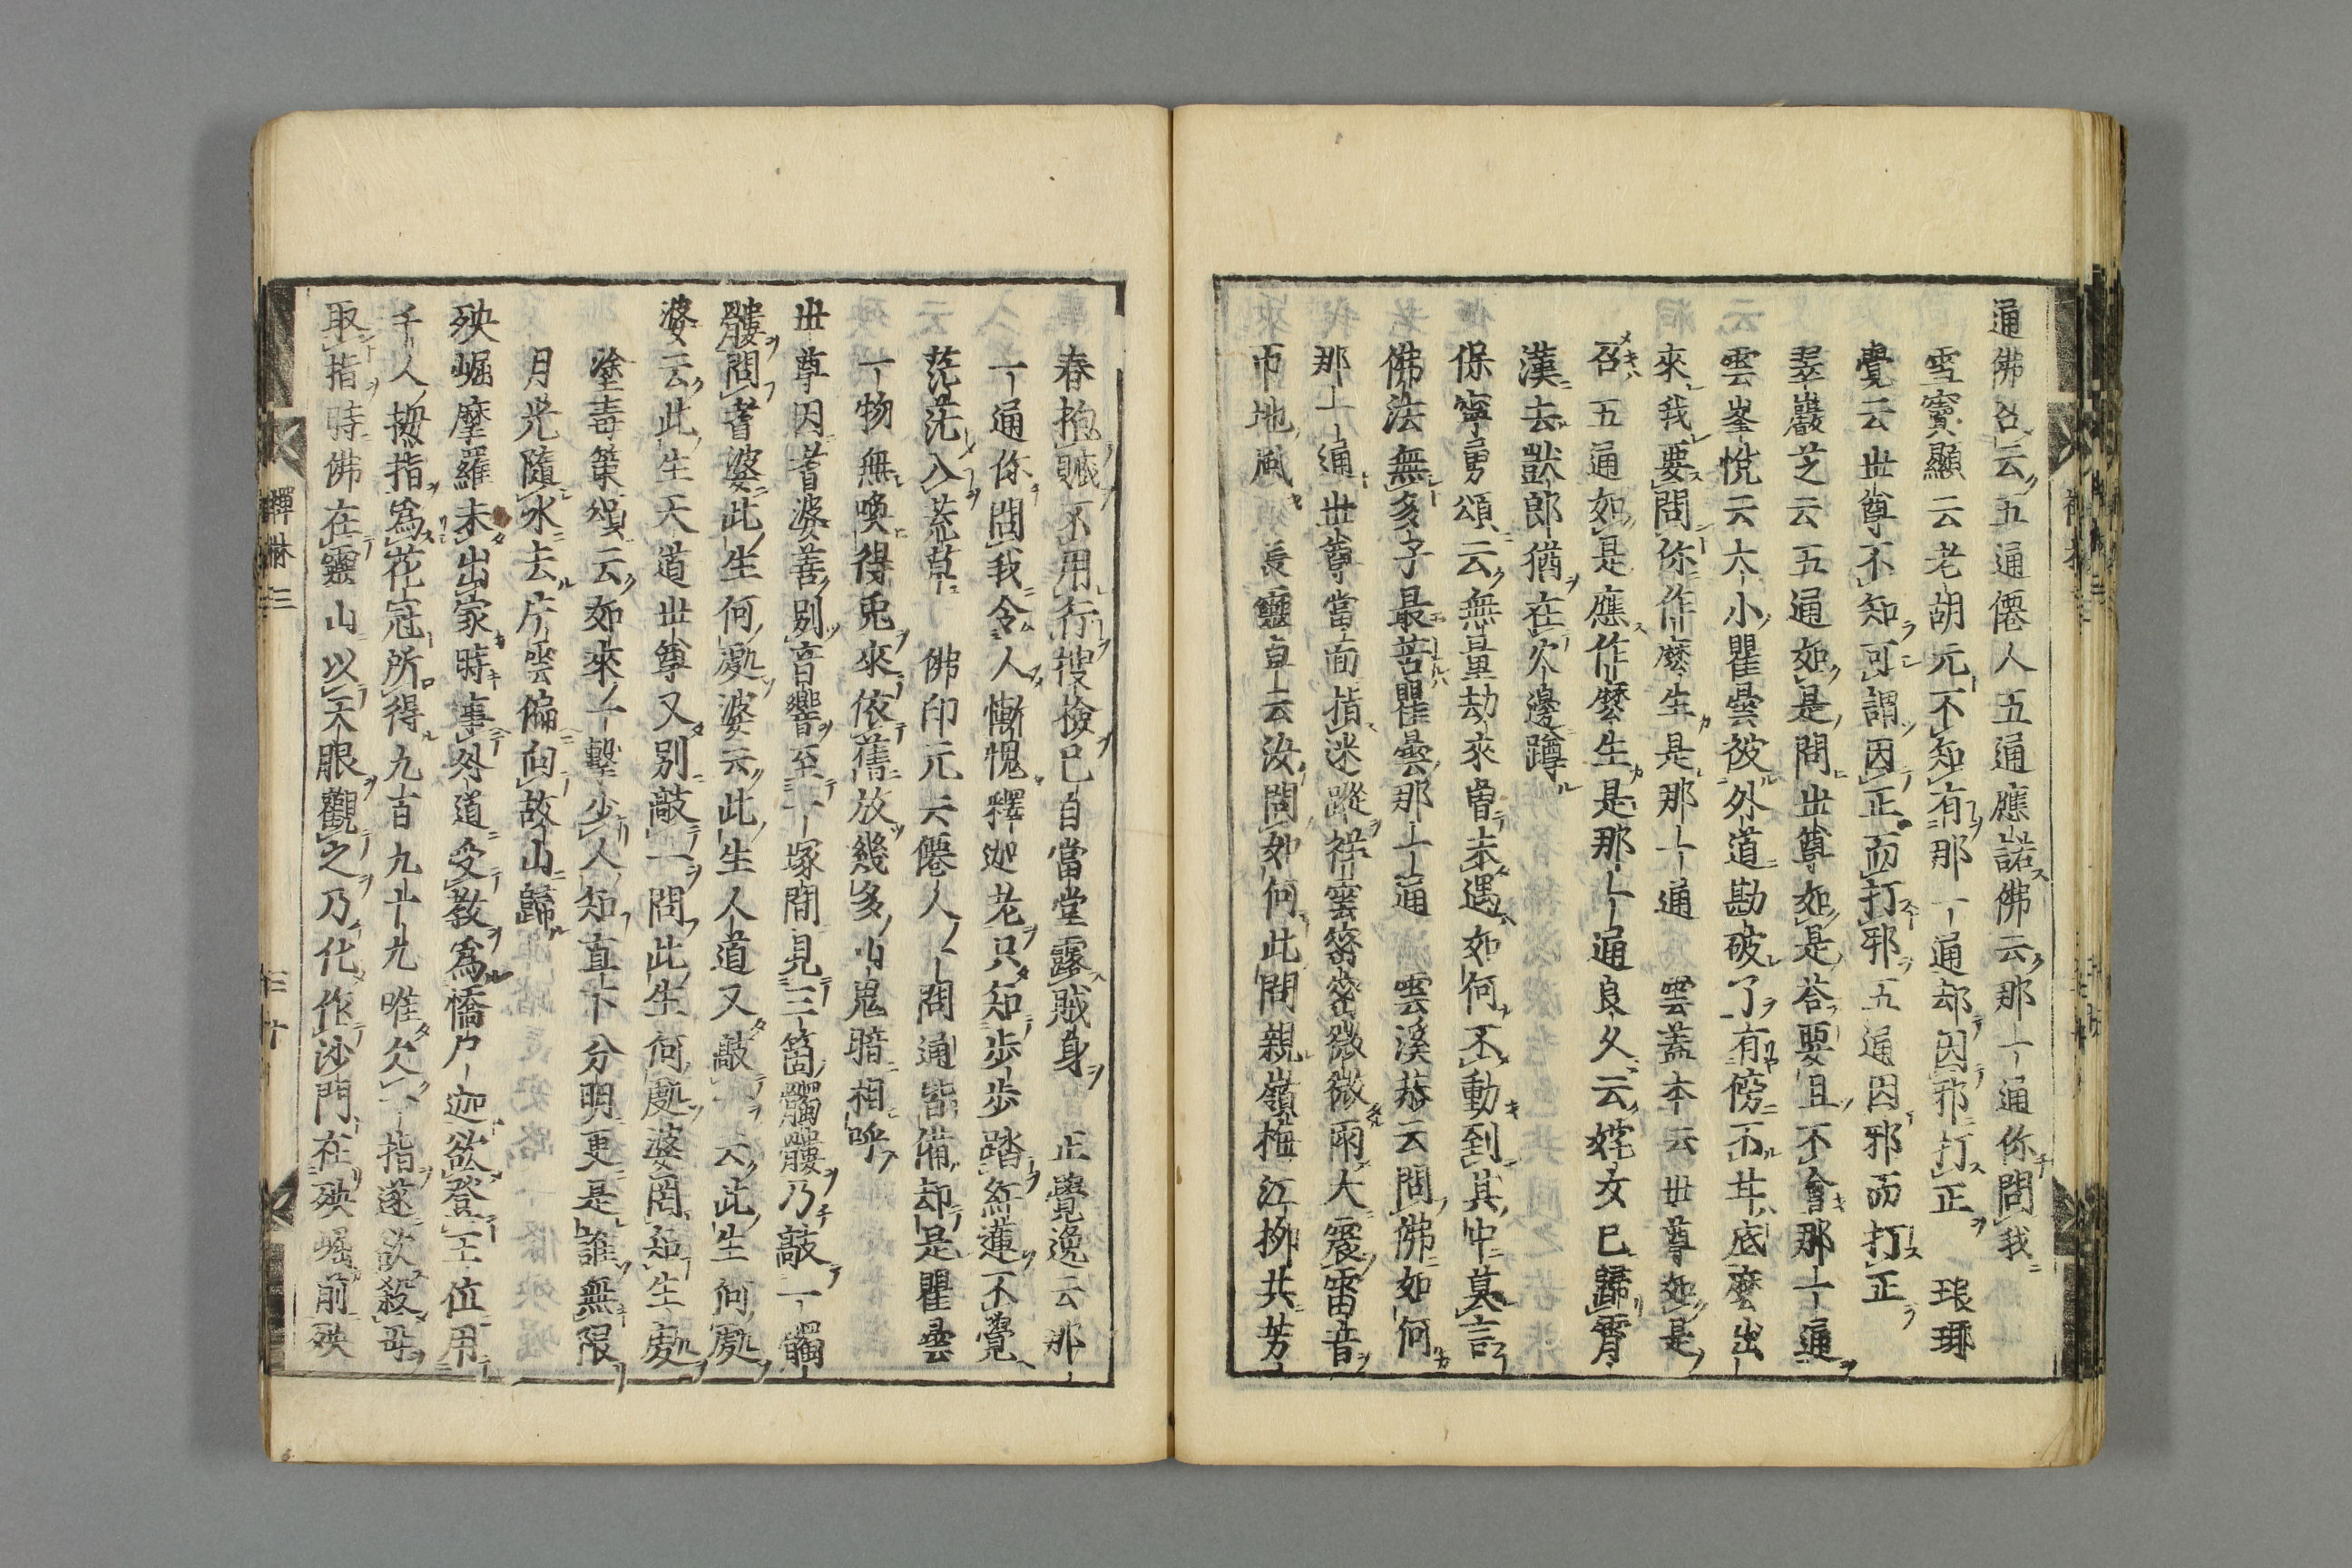 通佛召云五通僊人五通應諾佛云那一通你問我
雪竇顯云老胡元不知有那一通却因邪打正 琅琊
覺云世尊不知可謂因正而打邪五通因邪而打正
翠巖芝云五通如是問世尊如是荅要且不會那一通
雲峯悅云大小瞿曇被外道勘破了有傍不甘底麼出
來我要問你作麼生是那一通 雲蓋本云世尊如是
召五通如是應作麼生是那一通良久云姹女已歸霄
漢去獃郎猶在火邊蹲
保寧勇頌云無量劫來曾未遇如何不動到其中莫言
佛法無多子最苦瞿曇那一通 雲溪恭云問佛如何
那一通世尊當面指迷蹤祥雲密密微微雨大震雷音
帀地風 長靈卓云汝問如何此問親嶺梅江柳共芳
春抱贓不用行搜撿已自當堂露賊身 正覺逸云那
一通你問我令人慚愧釋迦老只知步步踏紅蓮不覺
茫茫入荒草 佛印元云僊人一問通皆備却是瞿曇
一物無喚得兎來依舊放幾多小鬼暗相呼
世尊因耆婆善別音響至一塚間見三箇髑髏乃敲一髑
髏問耆婆此生何處婆云此生人道又敲一云此生何處
婆云此生天道世尊又別敲一問此生何處婆罔知生處
塗毒策頌云如來一擊少人知直下分明更是誰無限
月光隨水去片雲偏向故山歸
殃崛摩羅未出家時事外道受教爲憍尸迦欲登王位用
千人拇指爲花冠所得九百九十九唯欠一指遂欲殺母
取指時佛在靈山以天眼觀之乃化作沙門在殃崛前殃
禪林三